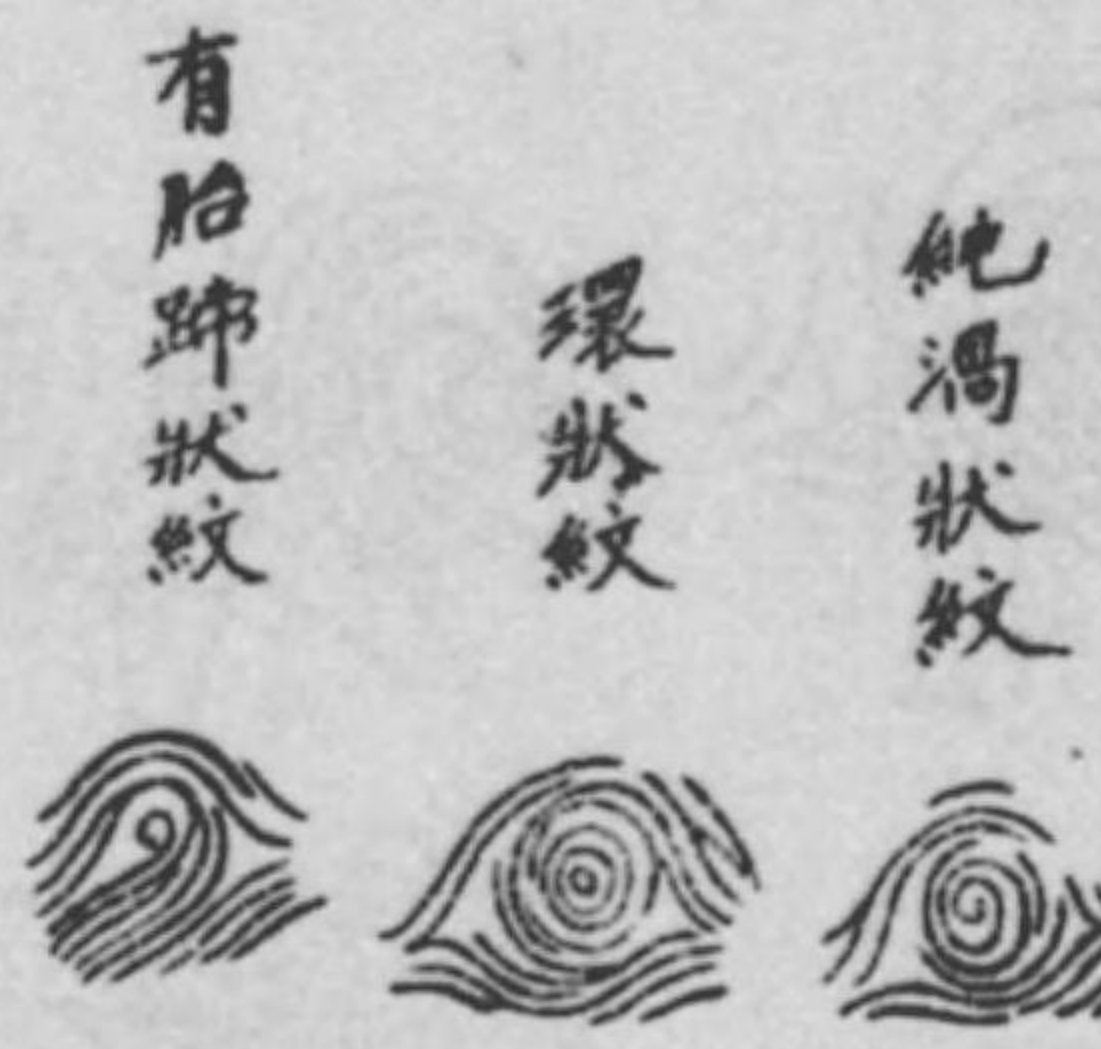 純渦狀紋
環狀紋
有胎蹄狀紋